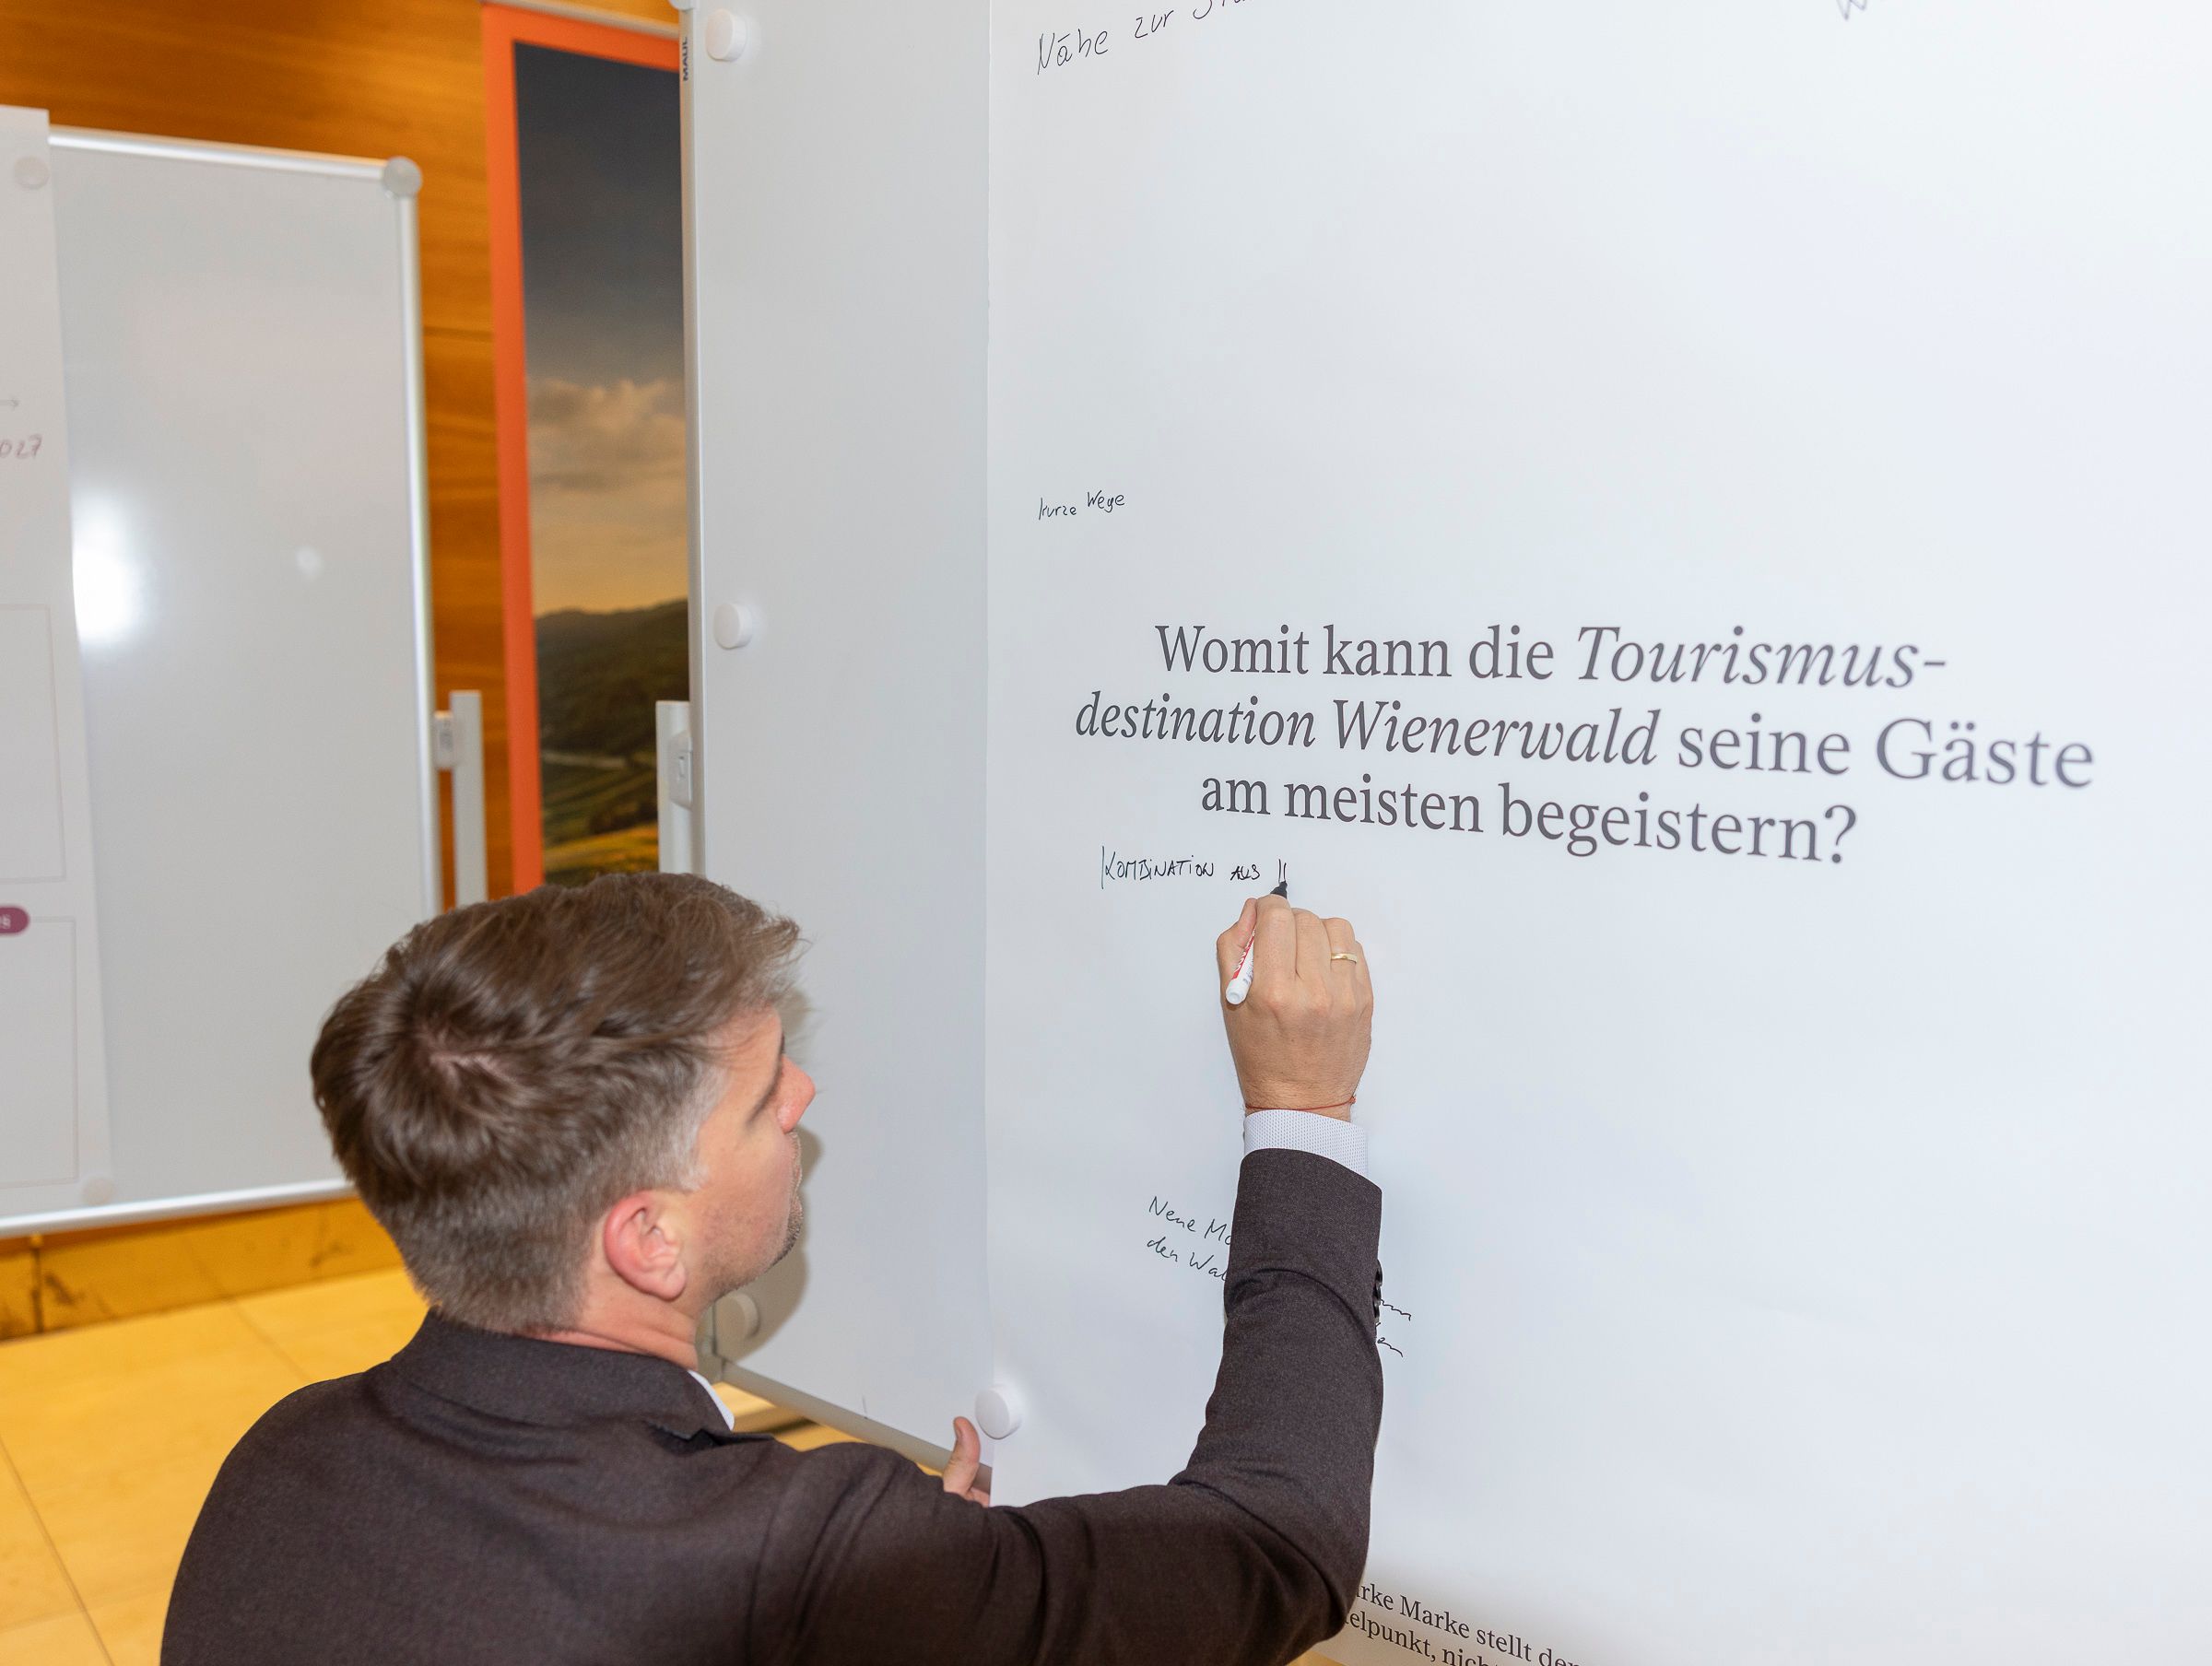 Nähe zur
MAUL
kurze Wege
Womit kann die Tourismus-
destination Wienerwald seine Gäste
am meisten begeistern?
KOMBINATION AUS
Neue
den
Marke stellt